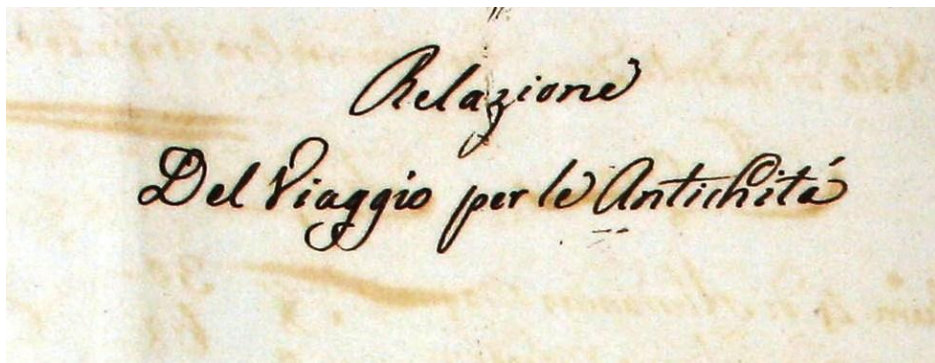 Relazione
Del Viaggio per le Antichitá